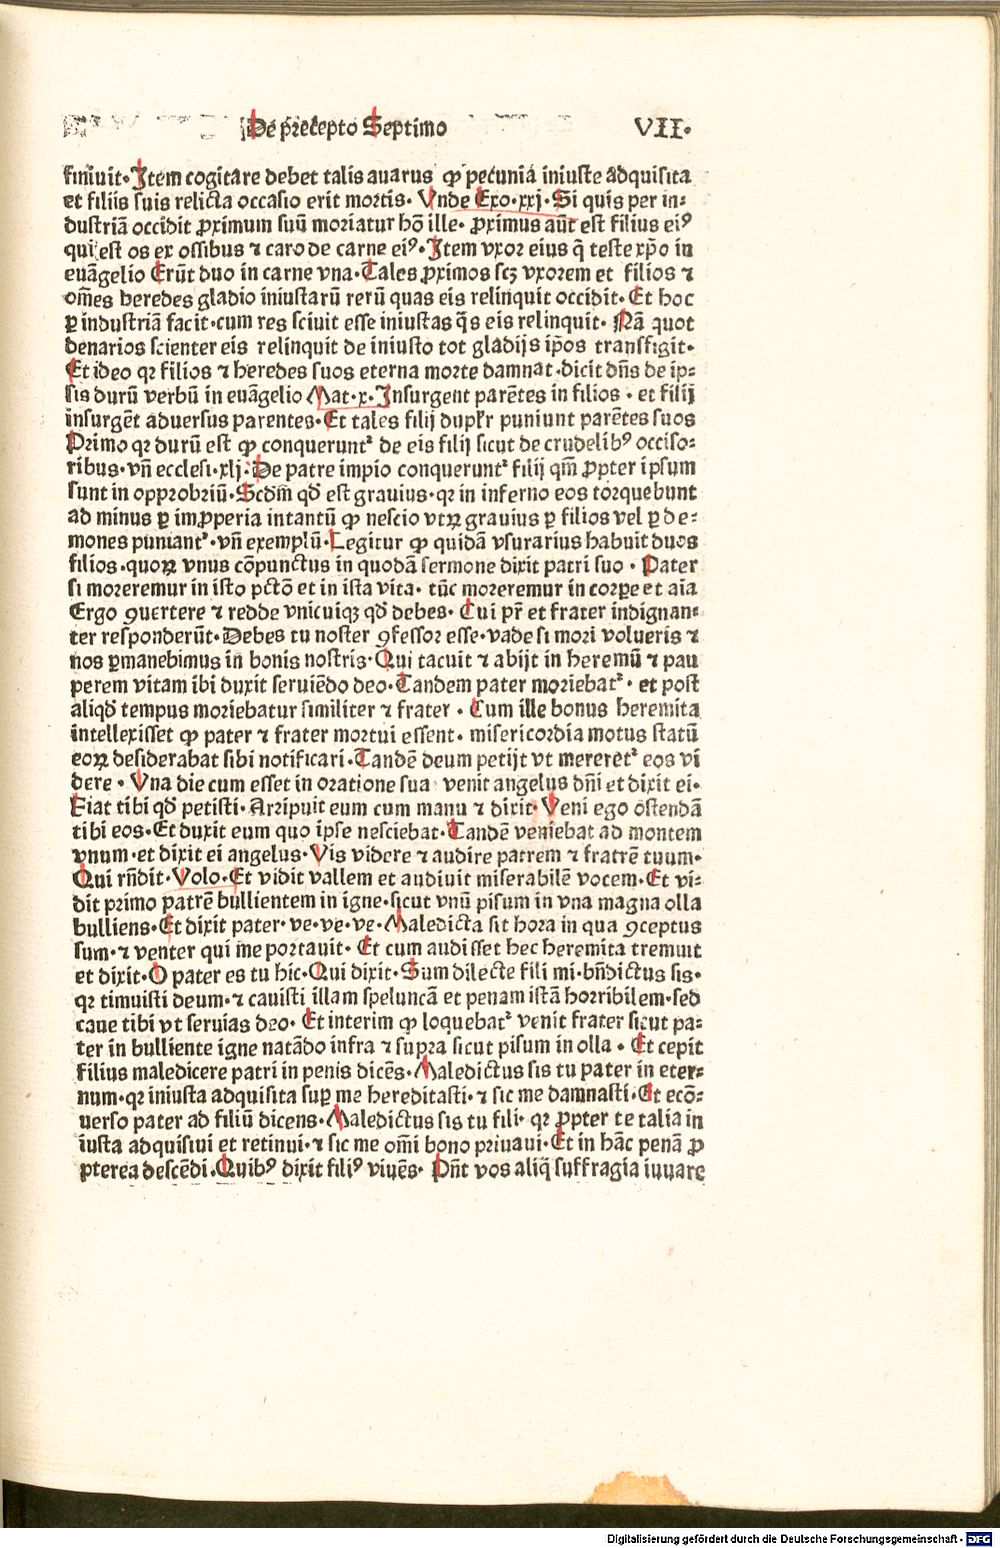 De precepto Septimo VII.
finiuit. Item cogitare debet talis auarus ꝙ pecunia iniuste adquisita
et filiis suis relicta occasio erit mortis. Vnde Exo. xxj. Si quis per in⸗
dustriā occidit ꝓximum suū moriatur hō ille. ꝓximus aūt est filius eiꝰ
qui est os ex ossibus ⁊ caro de carne eiꝰ. Item vxor eius q̄ teste xp̄o in
euāgelio Erūt duo in carne vna. Tales ꝓximos scꝫ vxorem et filios ⁊
om̄es heredes gladio iniustarū rerū quas eis relinquit occidit. Et hoc
ꝑ industriā facit. cum res sciuit esse iniustas q̄s eis relinquit. Nā quot
denarios scienter eis relinquit de iniusto tot gladijs ip̄os transfigit.
Et ideo qꝛ filios ⁊ heredes suos eterna morte damnat. dicit dn̄s de ip⸗
sis durū verbū in euāgelio Mat. x. Insurgent parētes in filios. et filij
insurgēt aduersus parentes. Et tales filij duplr̄ puniunt parētes suos
Primo qꝛ durū est ꝙ conquerunt᷑ de eis filij sicut de crudelibꝰ occiso⸗
ribus. vn̄ ecclesi. xlj. De patre impio conquerunt᷑ filij qm̄ ꝓpter ipsum
sunt in opprobriū. Scdm̄ qd̄ est grauius. qꝛ in inferno eos torquebunt
ad minus ꝑ imꝓperia intantū ꝙ nescio vtꝝ grauius ꝑ filios vel ꝑ de⸗
mones puniant᷑. vn̄ exemplū. Legitur ꝙ quidā vsurarius habuit duos
filios. quoꝝ vnus cōpunctus in quodā sermone dixit patri suo. Pater
si moreremur in isto pctō et in ista vita. tūc moreremur in corꝑe et aīa
Ergo ꝯuertere ⁊ redde vnicuiqꝫ qd̄ debes. Cui pr̄ et frater indignan⸗
ter responderūt. Debes tu noster ꝯfessor esse. vade si mori volueris ⁊
nos ꝑmanebimus in bonis nostris. Qui tacuit ⁊ abijt in heremū ⁊ pau
perem vitam ibi duxit seruiēdo deo. Tandem pater moriebat᷑. et post
aliqd̄ tempus moriebatur similiter ⁊ frater. Cum ille bonus heremita
intellexisset ꝙ pater ⁊ frater mortui essent. misericordia motus statū
eoꝝ desiderabat sibi notificari. Tandē deum petijt vt mereret᷑ eos vi
dere. Vna die cum esset in oratione sua venit angelus dn̄i et dixit ei.
Fiat tibi qd̄ petisti. Arripuit eum cum manu ⁊ dixit. Veni ego ostendā
tibi eos. Et duxit eum quo ipse nesciebat. Tandē veniebat ad montem
vnum. et dixit ei angelus. Vis videre ⁊ audire patrem ⁊ fratrē tuum.
Qui rn̄dit. Volo. Et vidit vallem et audiuit miserabilē vocem. Et vi⸗
dit primo patrē bullientem in igne. sicut vnū pisum in vna magna olla
bulliens. Et dixit pater. ve. ve. ve. Maledicta sit hora in qua ꝯceptus
sum. ⁊ venter qui me portauit. Et cum audisset hec heremita tremuit
et dixit. O pater es tu hic. Qui dixit. Sum dilecte fili mi. bn̄dictus sis.
qꝛ timuisti deum. ⁊ cauisti illam speluncā et penam istā horribilem. sed
caue tibi vt seruias deo. Et interim ꝙ loquebat᷑ venit frater sicut pa⸗
ter in bulliente igne natādo infra ⁊ supra sicut pisum in olla. Et cepit
filius maledicere patri in penis dicēs. Maledictus sis tu pater in eter⸗
num. qꝛ iniusta adquisita suꝑ me hereditasti. ⁊ sic me damnasti. Et ecō⸗
uerso pater ad filiū dicens. Maledictus sis tu fili. qꝛ ꝓpter te talia in
iusta adquisiui et retinui. ⁊ sic me om̄i bono priuaui. Et in hāc penā ꝓ
pterea descēdi. Quibꝰ dixit filiꝰ viuēs. Pn̄t vos aliq̄ suffragia iuuare
Digitalisierung gefördert durch die Deutsche Forschungsgemeinschaft - DFG